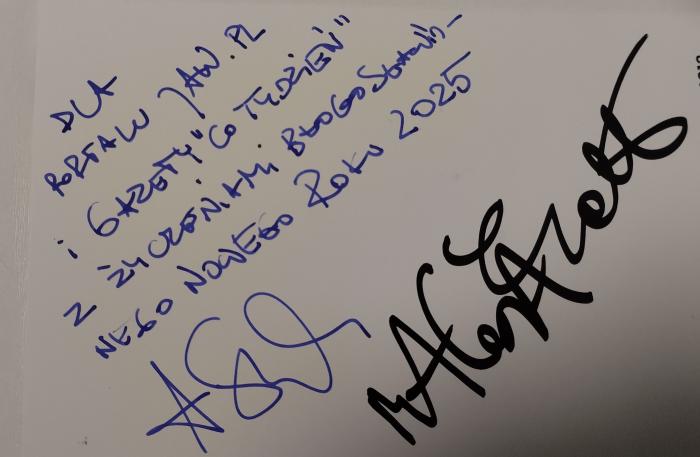 DLA
PORTALU JAW.PL
i GAZETY "CO TYDZIEŃ"
Z ŻYCZENIAMI BŁOGOSŁAWIO-
NEGO NOWEGO ROKU 2025